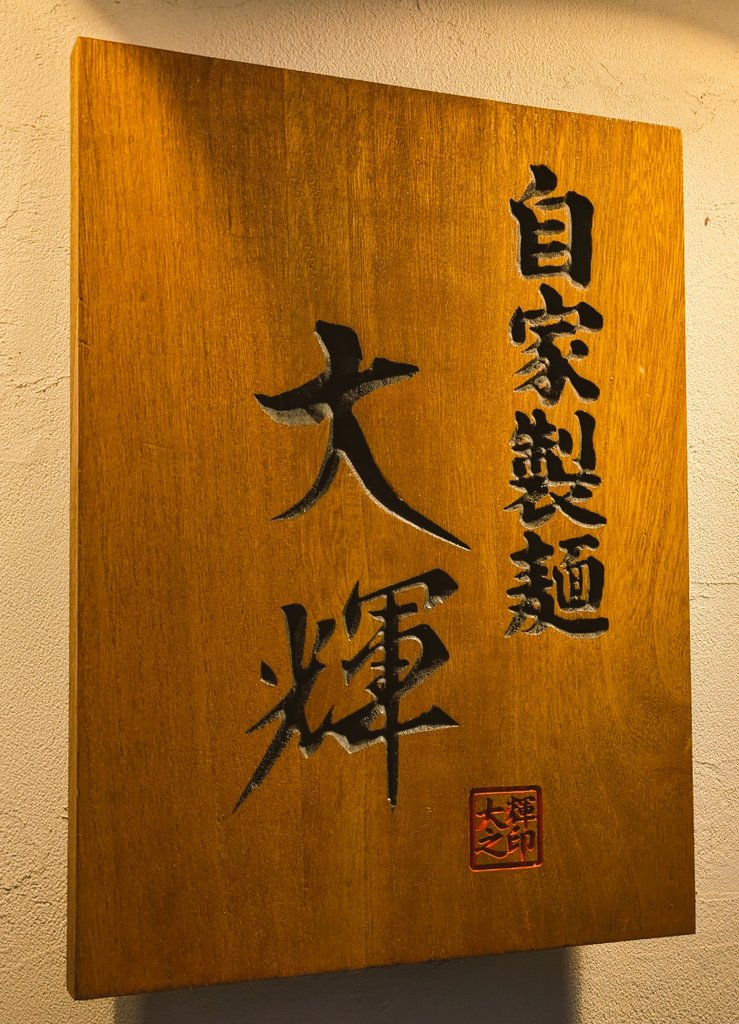 自家製麺
大輝
輝印
大之